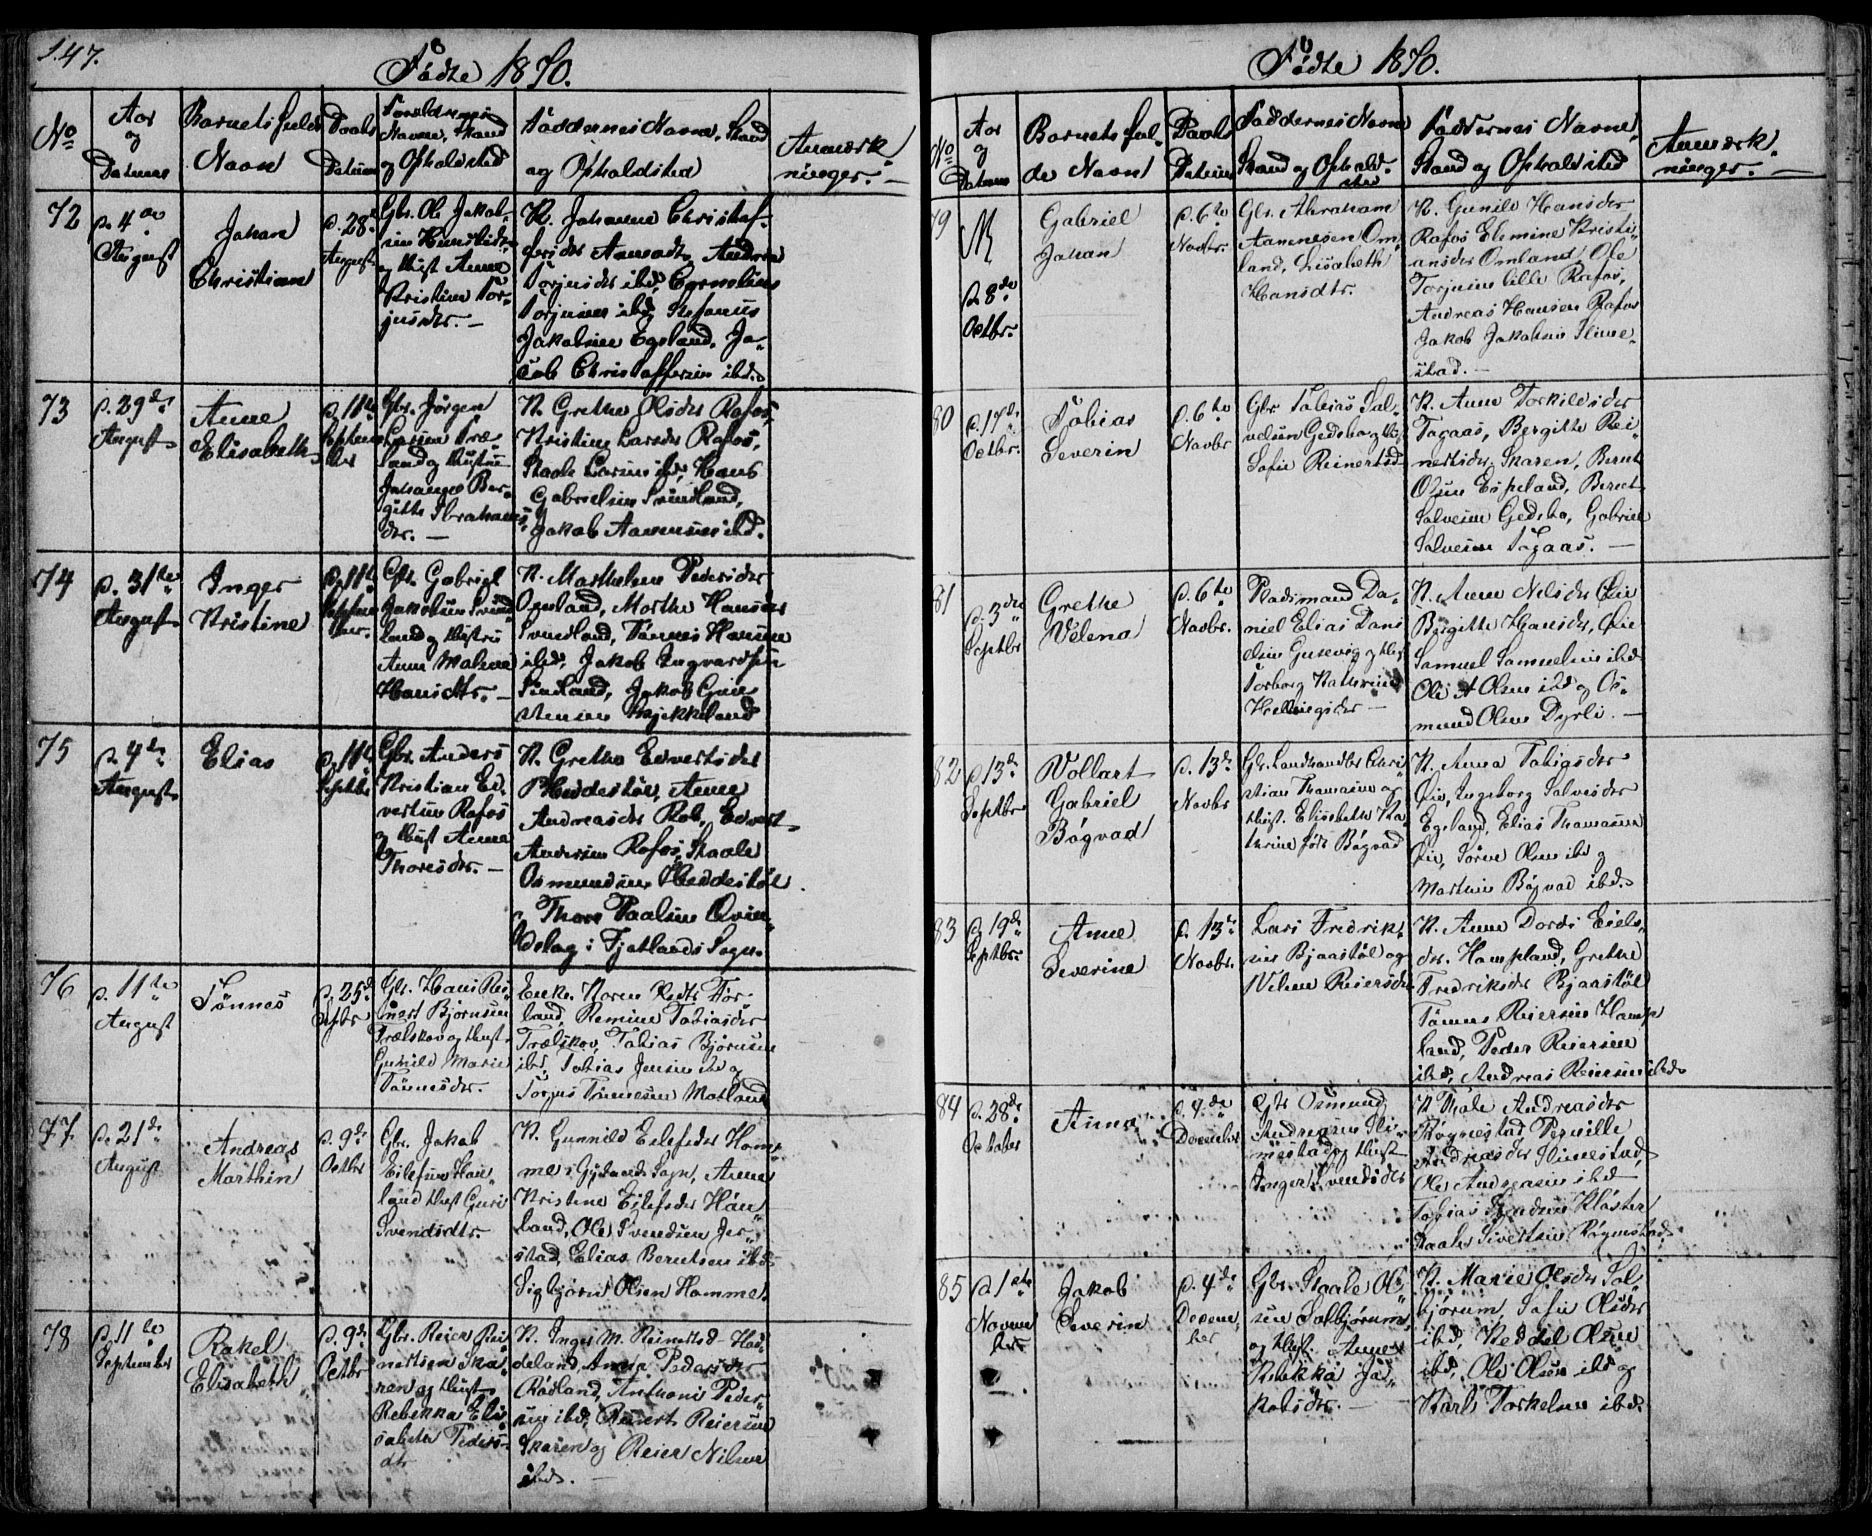 147.
Födte 1870.
No
Aar
og
Datum
Barnets fulde
Navn
Daabs
Datum
Forældrenes
Navne, Stand
og Opholdsted
Faddernes Navne, Stand
og Opholdsted
Anmærk-
ninger. —
72
d. 4de
August
Johan
Christian
d. 28de
August
Gbr. Ole Jakob-
sen
og Hust Anne
Kristine Tor-
jusdtr. —
N. Johanne Christof-
fersdtr Aamodt, Andrea
Torjusdtr ibd, Cornelius
Torjusen ibd, Stefanus
Jakobsen Egeland, Ja-
cob Christoffersen ibd.
73
d. 29de
August
Anne
Elisabeth
d. 11te
Septem-
ber
Gbr. Jörgen
Larsen Træ-
land og Hustru
Johanne Ber-
gitte Abrahams-
dtr. —
N. Grethe Olsdtr Rafos,
Kristine Larsdtr Rafos,
Staale Larsen ibd, Hans
Gabrielsen Svindland,
Jakob Aanensen ibd.
74
d. 31te
August
Inger
Kristine
d. 11te
Septem-
ber.
Gbr. Gabriel
Jakobsen Svind-
land og Hustru
Anne Malene
Hansdtr. —
N. Marthelene Pedersdtr
Omland, Marthe Hansdtr
Svindland, Tönnes Hansen
ibd, Jakob Ingvardsen
Sindland, Jakob Guns-
stensen Mjekkeland
75
d. 4de
August
Elias
d. 11te
Septbr
Gbr. Anders
Kristian Ed-
vertsen Rafos
og Hust Anne
Thoresdtr. —
N. Grethe Edvertsdtr
Heddestöl, Anne
Andreasdtr Rob, Edvert
Andersen Rafos, Staale
Osmundsen Heddestöl
Thore Paalsen Qvin-
i Fjotlands Sogn.
76
d. 11te
August
Tönnes
d. 25de
Septbr
Gbr. Hans Rei-
nert Björnsen
Trælskov og Hust.
Gunild Marie
Tönnesdtr.
Enke. Karen Kedts For-
land, Remine Tobiasdtr
Trælskov, Tobias Björnsen
ibd, Tobias Jensen ibd og
Torjus Tönnesen Moland
77
d. 21de
August
Andreas
Marthin
d. 9de
Octbr
Gbr. Jakob
Eilefsen Hau-
land Hust Guri
Svendsdtr.
N. Gunnild Eilefsdtr Hom-
me i Gylands Sogn, Anne
Kristine Eilefsdtr Hau-
land, Ole Svendsen Jer-
stad, Elias Berntsen ibd
Sigbjörn Olsen Homme.
78
d. 11te
September
Rakel
Elisabeth
d. 9de
Octbr
Gbr. Reier Rei-
nertsen Ska-
ren og Hust
Rebekka Eli-
sabeth Peders-
dtr
N. Inger M. Reinertsd Had-
deland, Anna Pedersdtr
Rödland, Anthoni Peder-
sen ibd, Reinert Reiersen
Skaren og Reier Nilsen
ibd. —
Födte 1870.
No
Aar
og
Datum
Barnets ful-
de Navn
Daabs
Datum
Faddernes Navne
Stand og Ophold-
sted
Faddernes Navne
Stand og Opholdsted
Anmærk-
ninger. —
79
d. 8de
Octbr.
Gabriel
Johan
d. 6te
Novbr.
Gbr. Abraham
Aanensen Om-
land, Lisabeth
Hansdtr.
N. Gunild Hansdtr
Rafos Elemine Kristi-
ansdtr Omland, Ole
Torjusen lille Rafos,
Andreas Hansen Rafos
Jakob Jakobsen Slime-
stad. —
80
d. 17de
Octbr.
Tobias
Severin
d. 6te
Novbr
Gbr. Tobias Sal-
vesen Gedsbo og Hu.
Sofie Reinertsd
N. Anne Torkildsdtr
Tagaas, Bergitte Rei-
nertsdtr Skaren, Bernt
Olsen Espeland, Berent
Salvesen Gedsbo, Gabriel
Salvesen Tagaas. —
81
d. 3die
Septbr
Grethe
Velena
d. 6te
Novbr.
Pladsmand Da-
niel Elias Dani-
elsen Gusevig og Hust
Torborg Kathrine
Helliigsdtr —
N. Anne Nilsdtr Öie
Birgitte Hansdtr, Öie
Samuel Samuelsen ibd
Ole A Olsen ibd og Os-
mund Olsen Dyrli. —
82
d. 13de
Septbr
Vollart
Gabriel
Bögvad
d. 13de
Novbr
Gbr. Landhandler Chri-
stian Thomasen og
Hust. Elisabeth Ka-
thrine föd Bögvad
N. Anna Tobiasdtr
Öie, Ingeborg Salvesdtr
Egeland, Elias Thomasen
Öie, Sören Olsen ibd og
Martin Bögvad ibd.
83
d. 19de
Septbr.
Anne
Severine
d. 13de
Novbr.
Lars Fredrik-
sen Bjaastöl og
Velene Reiersdtr
N. Anne Dordi Eiels-
dtr. Hampland, Grethe
Fredriksdtr Bjaastöl
Tönnes Reiersen Hamp-
land, Peder Reiersen
ibd, Andreas Reiersen ibd.
84
d. 28de
October
Anna
d. 4de
December
Gbr Osmund
Andreasen Sli-
mestad og Hust
Inger Svendsdtr
N. Male Andreasdtr
Rögnestad Pernille
Andreasdtr Slimestad
Ole Andreasen ibd
Tobias Klöster
Paale Sivertsen Rögnestad
85
d. 1ste
Novem-
ber
Jakob
Severin
d. 4de
Decem-
ber
Gbr. Staale Ol-
sen Solbjörum,
og Hust. Anne
Rebekka Ja-
kobsdtr. —
N. Marie Olsdtr Sol-
björum, Sofie Olsdtr
ibd, Keddel Olsen
ibd, Ole Olsen ibd og
Karl Torkelsen ibd.